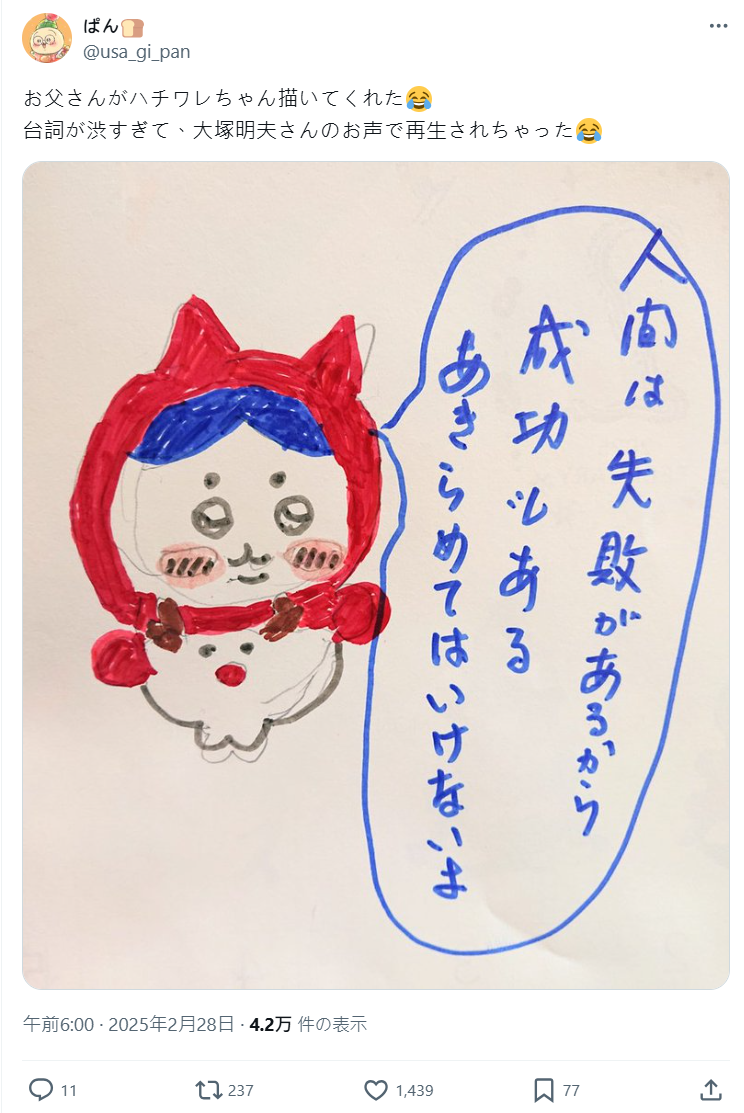 ぱん🍞
@usa_gi_pan
お父さんがハチワレちゃん描いてくれた😂
台詞が渋すぎて、大塚明夫さんのお声で再生されちゃった😂
人間は失敗があるから
成功もある
あきらめてはいけないよ
午前6:00 · 2025年2月28日 · 4.2万 件の表示
11
237
1,439
77